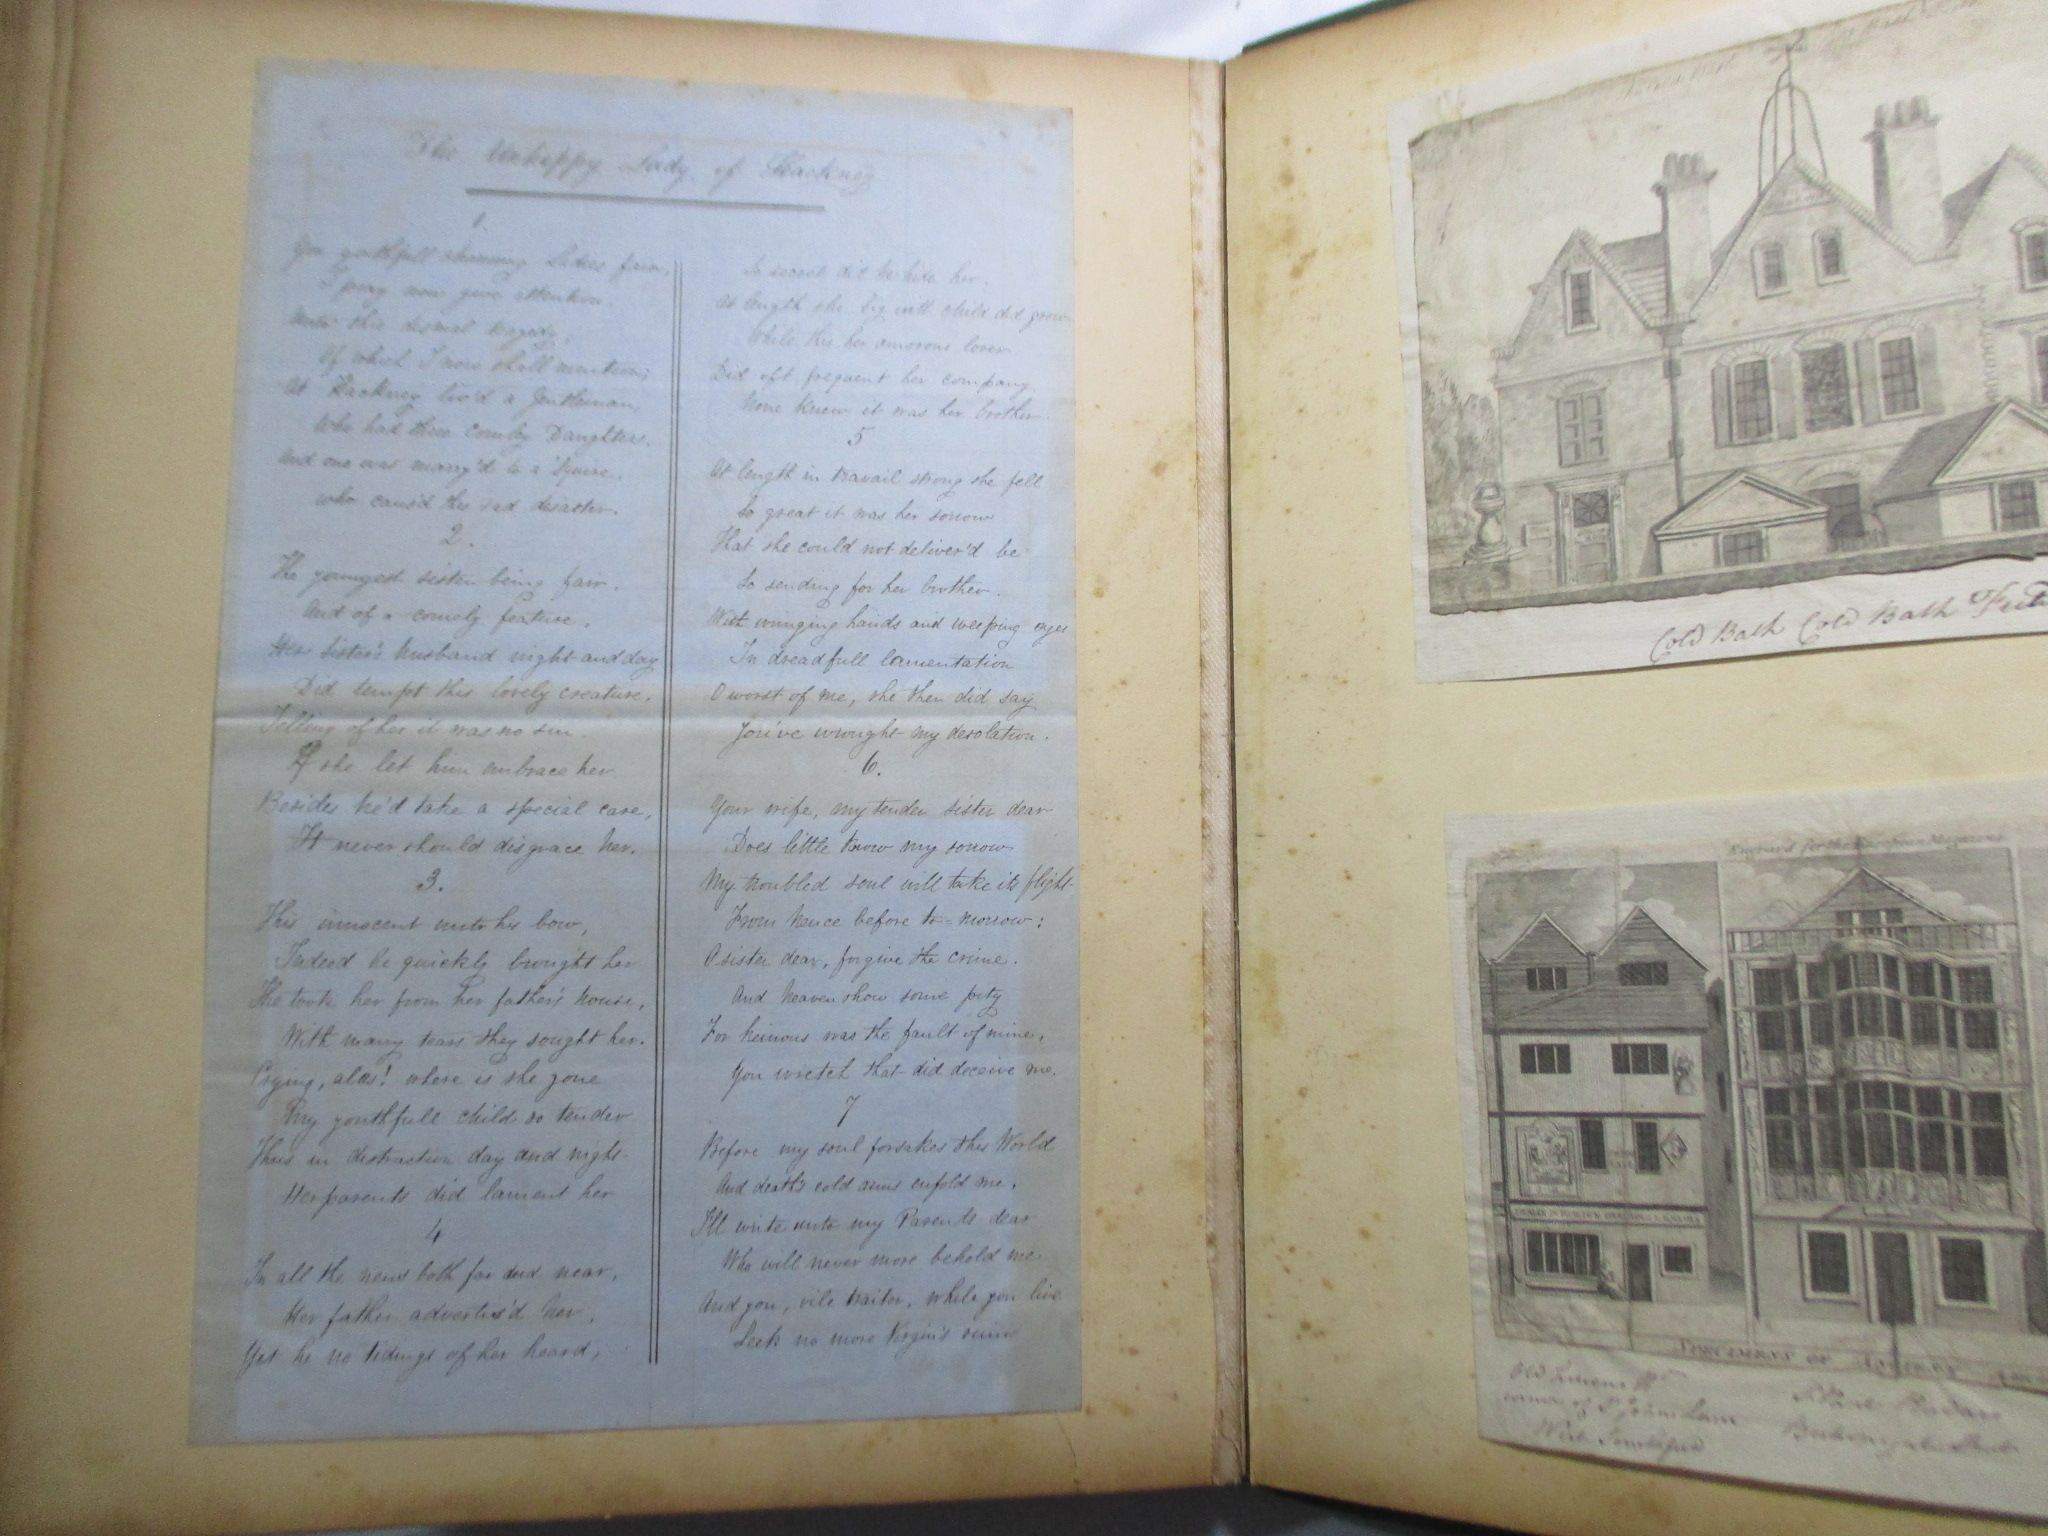 The Unhappy Lady of Hackney
1.
You youthfull charming Ladies fair,
I pray now give attention.
Unto this dismal tragedy,
Of which I now shall mention;
At Hackney liv'd a Gentleman,
Who had three comely Daughters.
And one was marry'd to a 'Squire.
who caus'd this sad disaster.
2.
The youngest sister being fair.
And of a comely feature.
Her sister's husband night and day
Did tempt this lovely creature.
Telling of her it was no sin
If she let him embrace her
Besides he'd take a special care,
It never should disgrace her.
3.
This innocent unto his bow,
Indeed he quickly brought her
He took her from her father's house,
With many tears they sought her.
Crying, alas! where is she gone
My youthfull child so tender
Thus in distraction day and night
Her parents did lament her
4
In all the news both far and near,
Her father advertis'd her,
Yet he no tidings of her heard,
So secret did he hide her.
At length she big with child did grow
While this her amorous lover
Did oft frequent her company
None knew it was her brother.
5
At length in travail strong she fell
So great it was her sorrow
That she could not deliver'd be
So sending for her brother.
With wringing hands and weeping eyes
In dreadfull lamentation
O worst of me, she then did say
You've wrought my desolation.
6.
Your wife, my tender sister dear
Does little know my sorrow
My troubled soul will take its flight
From hence before to-morrow:
O sister dear, forgive the crime.
And heaven show some pity
For heinous was the fault of mine,
You wretch that did deceive me.
7
Before my soul forsakes this World
And death's cold arms enfold me,
I'll write unto my Parents dear
Who will never more behold me.
And you, vile traitor, while you live
Seek no more Virgin's ruin
Cold Bath Cold Bath
Engraved for the European Magazine
Specimens of
Old
corner of St John's Lane
West Smithfield
Sr Paul Pindars
Bishopsgate Street